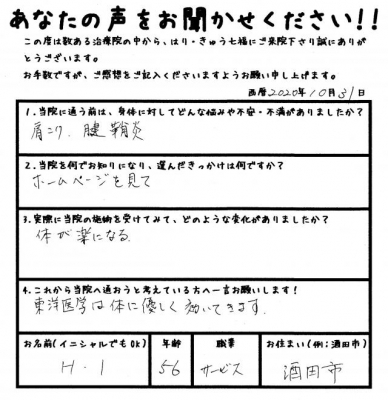 あなたの声をお聞かせください!!
この度は数ある治療院の中から、はり・きゅう七福にご来院下さり誠にありが
とうございます。
お手数ですが、ご感想をご記入くださいますようお願い申し上げます。
西暦2020年10月31日
1.当院に通う前は、身体に対してどんな悩みや不安・不満がありましたか?
肩こり、腱鞘炎
2.当院を何でお知りになり、選んだきっかけは何ですか?
ホームページを見て
3.実際に当院の施術を受けてみて、どのような変化がありましたか?
体が楽になる。
4.これから当院へ通おうと考えている方へ一言お願いします!
東洋医学は体に優しく効いてきます。
お名前(イニシャルでもOK) 年齢 職業 お住まい(例:酒田市)
H.I 56 サービス 酒田市